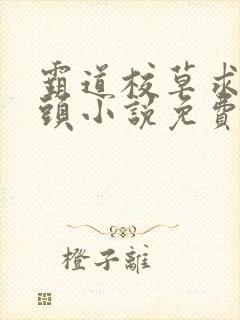 霸道校草求
頭小說免費
橙子離